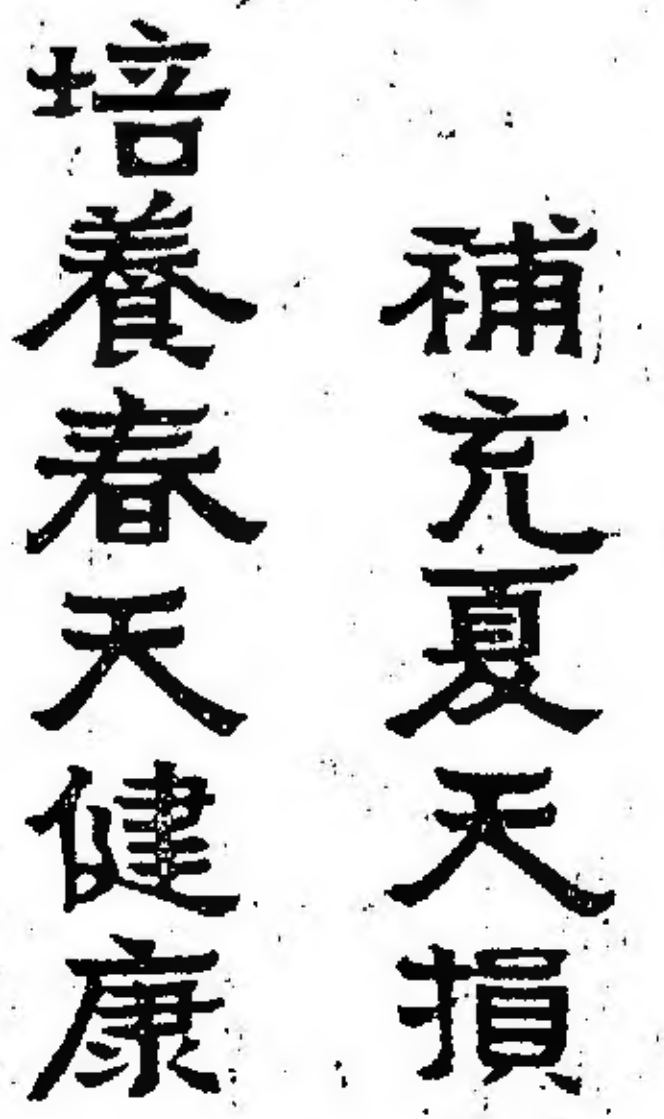 補充夏天損
培養春天健康